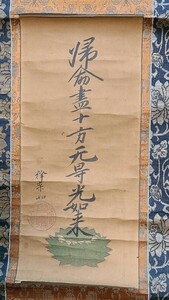 帰命盡十方无㝵光如来